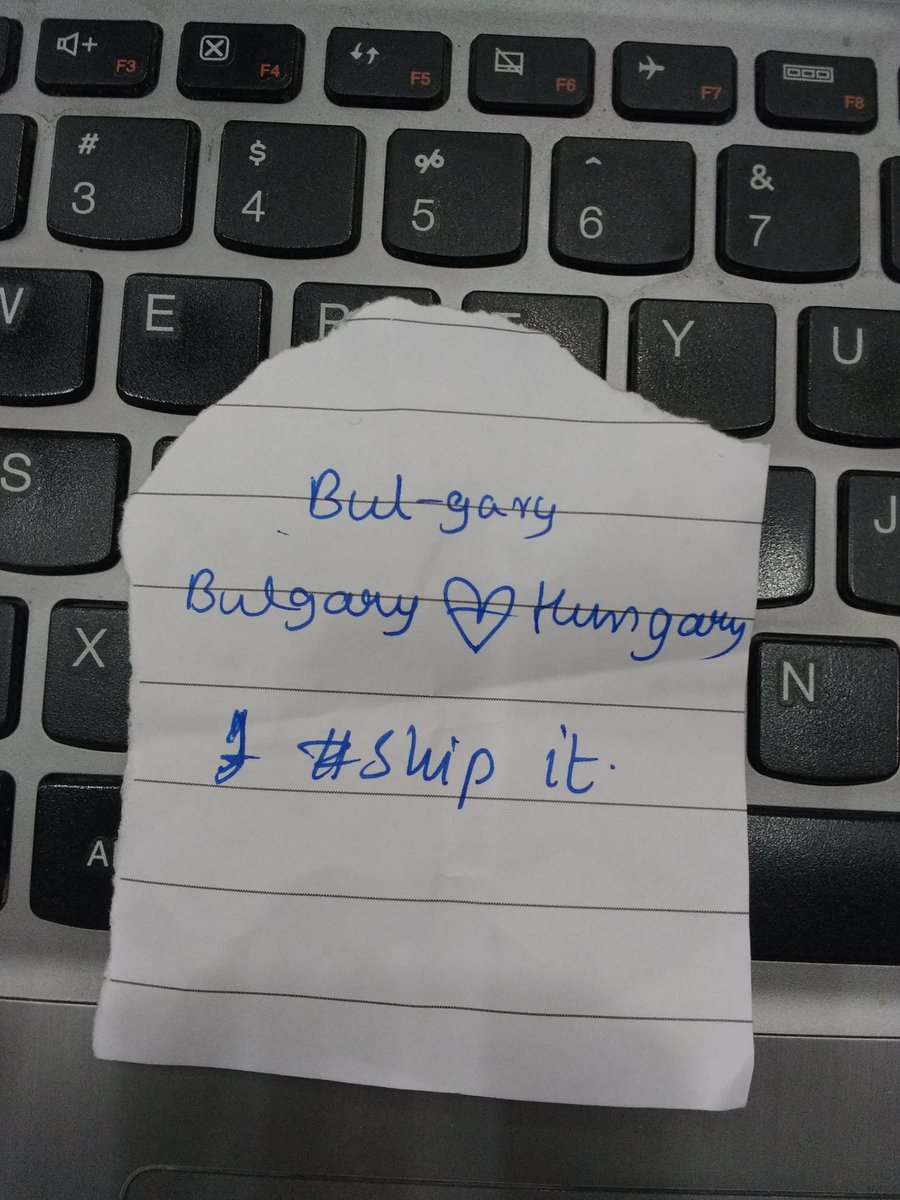 F3 F4 F5 F6 F7 F8
# 3 $ 4 % 5 ^ 6 & 7
W E R Y U
Bul-gary
S J
Bulgary ♡ Hungary
X N
I #Ship it.
A